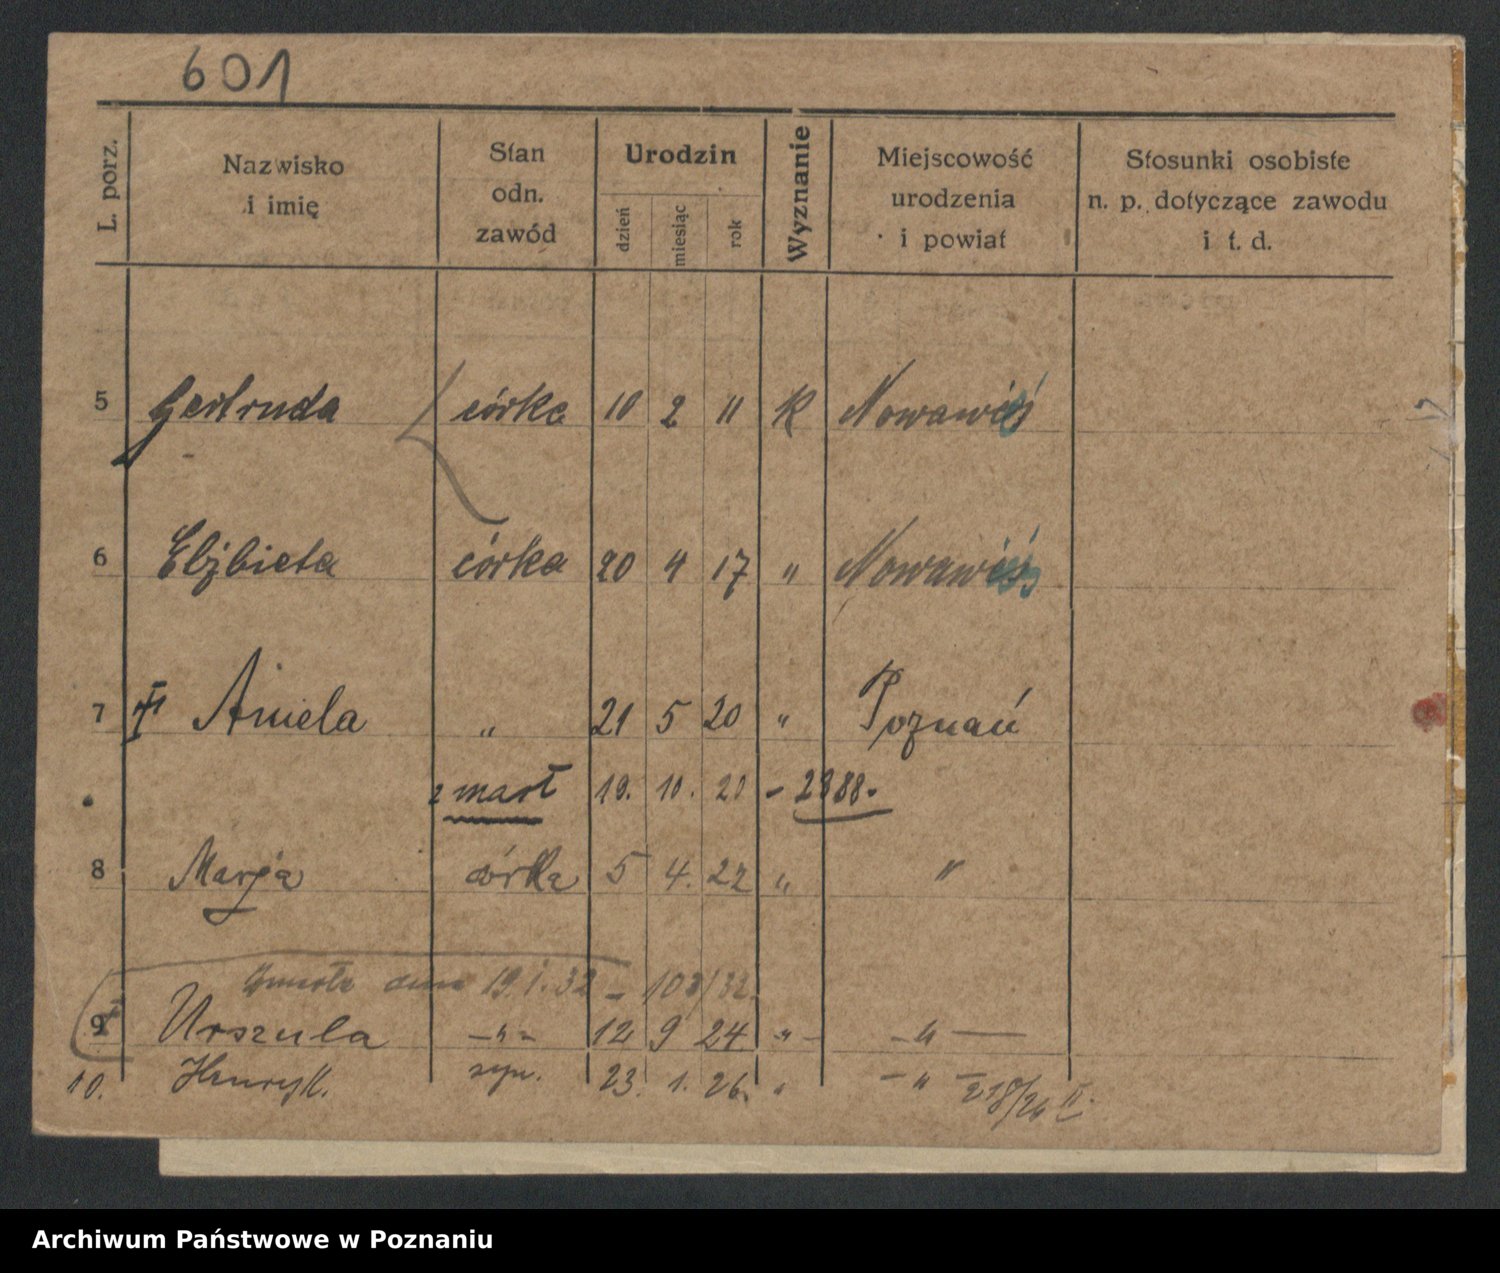 601
L. porz.
Nazwisko
i imię
Stan
odn.
zawód
Urodzin
dzień
miesiąc
rok
Wyznanie
Miejscowość
urodzenia
i powiat
Stosunki osobiste
n. p. dotyczące zawodu
i t. d.
5 Gertruda córka 10 2 11 K Nowawieś
6 Elżbieta córka 20 4 17 " Nowawieś
7 Aniela " 21 5 20 " Poznań
zmarł 19. 10. 20 - 2388.
8 Marja córka 5 4. 22 " "
zmarła dnia 19.1.32 - 103/32.
9 Urszula -"- 12 9 24 " - -"-
10. Henryk. syn. 23. 1. 26. " -"- 218/26 II.
Archiwum Państwowe w Poznaniu